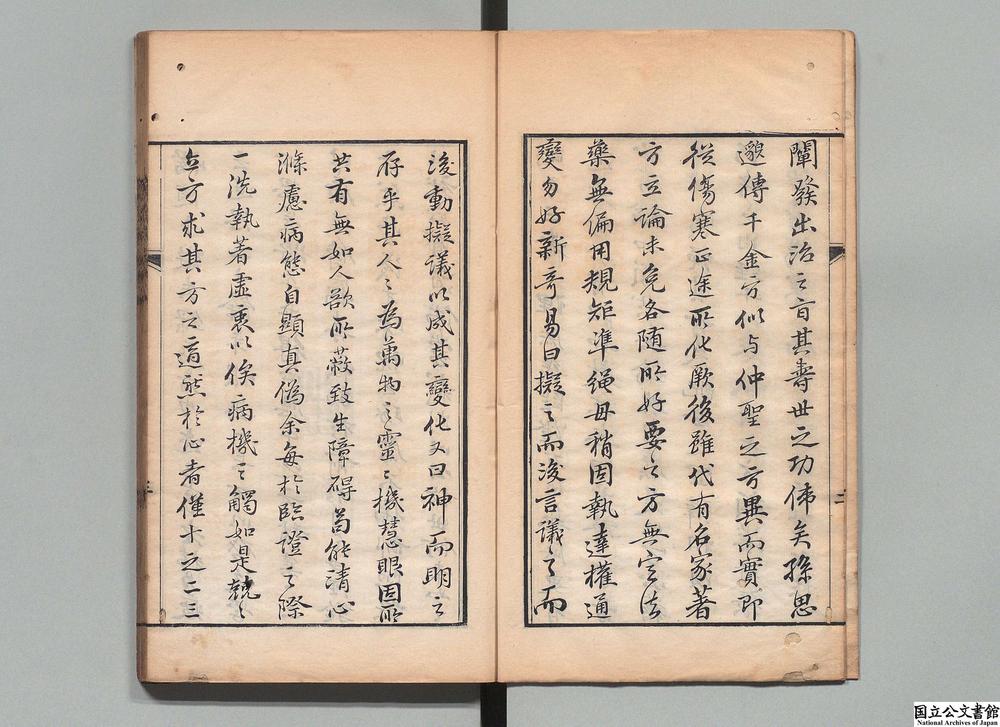 闡發出治之旨其壽世之功偉矣孫思
邈傳千金方似与仲聖之方異而實即
從傷寒正途所化厥後雖代有名家著
方立論未免各随所好要之方無定法
藥無偏用規矩準繩毋稍固執達權通
變勿好新奇易曰擬之而後言議之而
後動擬議以成其變化又曰神而明之
存乎其人人為萬物之靈靈機慧眼固所
共有無如人欲所蔽致生障碍苟能清心
滌慮病態自顯真偽余每於臨證之際
一洗執著虚衷以俟病機之觸如是兢兢
立方求其方之適然於心者僅十之二三
二
三
国立公文書館
National Archives of Japan